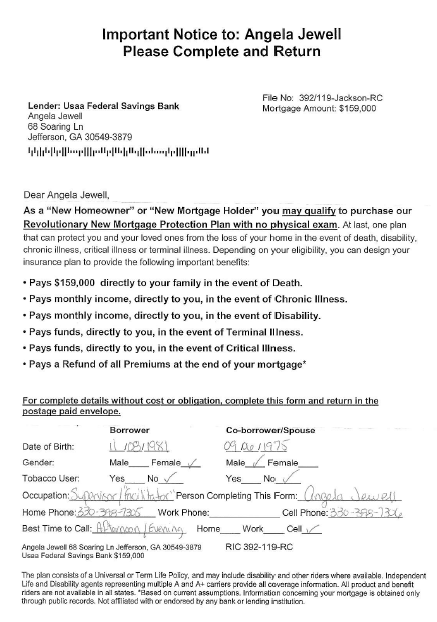 Important Notice to: Angela Jewell
Please Complete and Return
File No: 392/119-Jackson-RC
Mortgage Amount: $159,000
Lender: Usaa Federal Savings Bank
Angela Jewell
68 Soaring Ln
Jefferson, GA 30549-3879
Dear Angela Jewell,
As a "New Homeowner" or "New Mortgage Holder" you may qualify to purchase our
Revolutionary New Mortgage Protection Plan with no physical exam. At last, one plan
that can protect you and your loved ones from the loss of your home in the event of death, disability,
chronic illness, critical illness or terminal illness. Depending on your eligibility, you can design your
insurance plan to provide the following important benefits:
• Pays $159,000 directly to your family in the event of Death.
• Pays monthly income, directly to you, in the event of Chronic Illness.
• Pays monthly income, directly to you, in the event of Disability.
• Pays funds, directly to you, in the event of Terminal Illness.
• Pays funds, directly to you, in the event of Critical Illness.
• Pays a Refund of all Premiums at the end of your mortgage*
For complete details without cost or obligation, complete this form and return in the
postage paid envelope.
Borrower Co-borrower/Spouse
Date of Birth: 11/03/1981 /1975
Gender: Male Female ✓ Male ✓ Female
Tobacco User: Yes No ✓ Yes No ✓
Occupation: Supervisor/Facilitator Person Completing This Form: Angela Jewell
Home Phone: 330-398-7305 Work Phone: Cell Phone: 330-398-7306
Best Time to Call: Afternoon/Evening Home Work Cell ✓
Angela Jewell 68 Soaring Ln Jefferson, GA 30549-3879 RIC 392-119-RC
Usaa Federal Savings Bank $159,000
The plan consists of a Universal or Term Life Policy, and may include disability and other riders where available. Independent
Life and Disability agents representing multiple A and A+ carriers provide all coverage information. All product and benefit
riders are not available in all states. *Based on current assumptions. Information concerning your mortgage is obtained only
through public records. Not affiliated with or endorsed by any bank or lending institution.